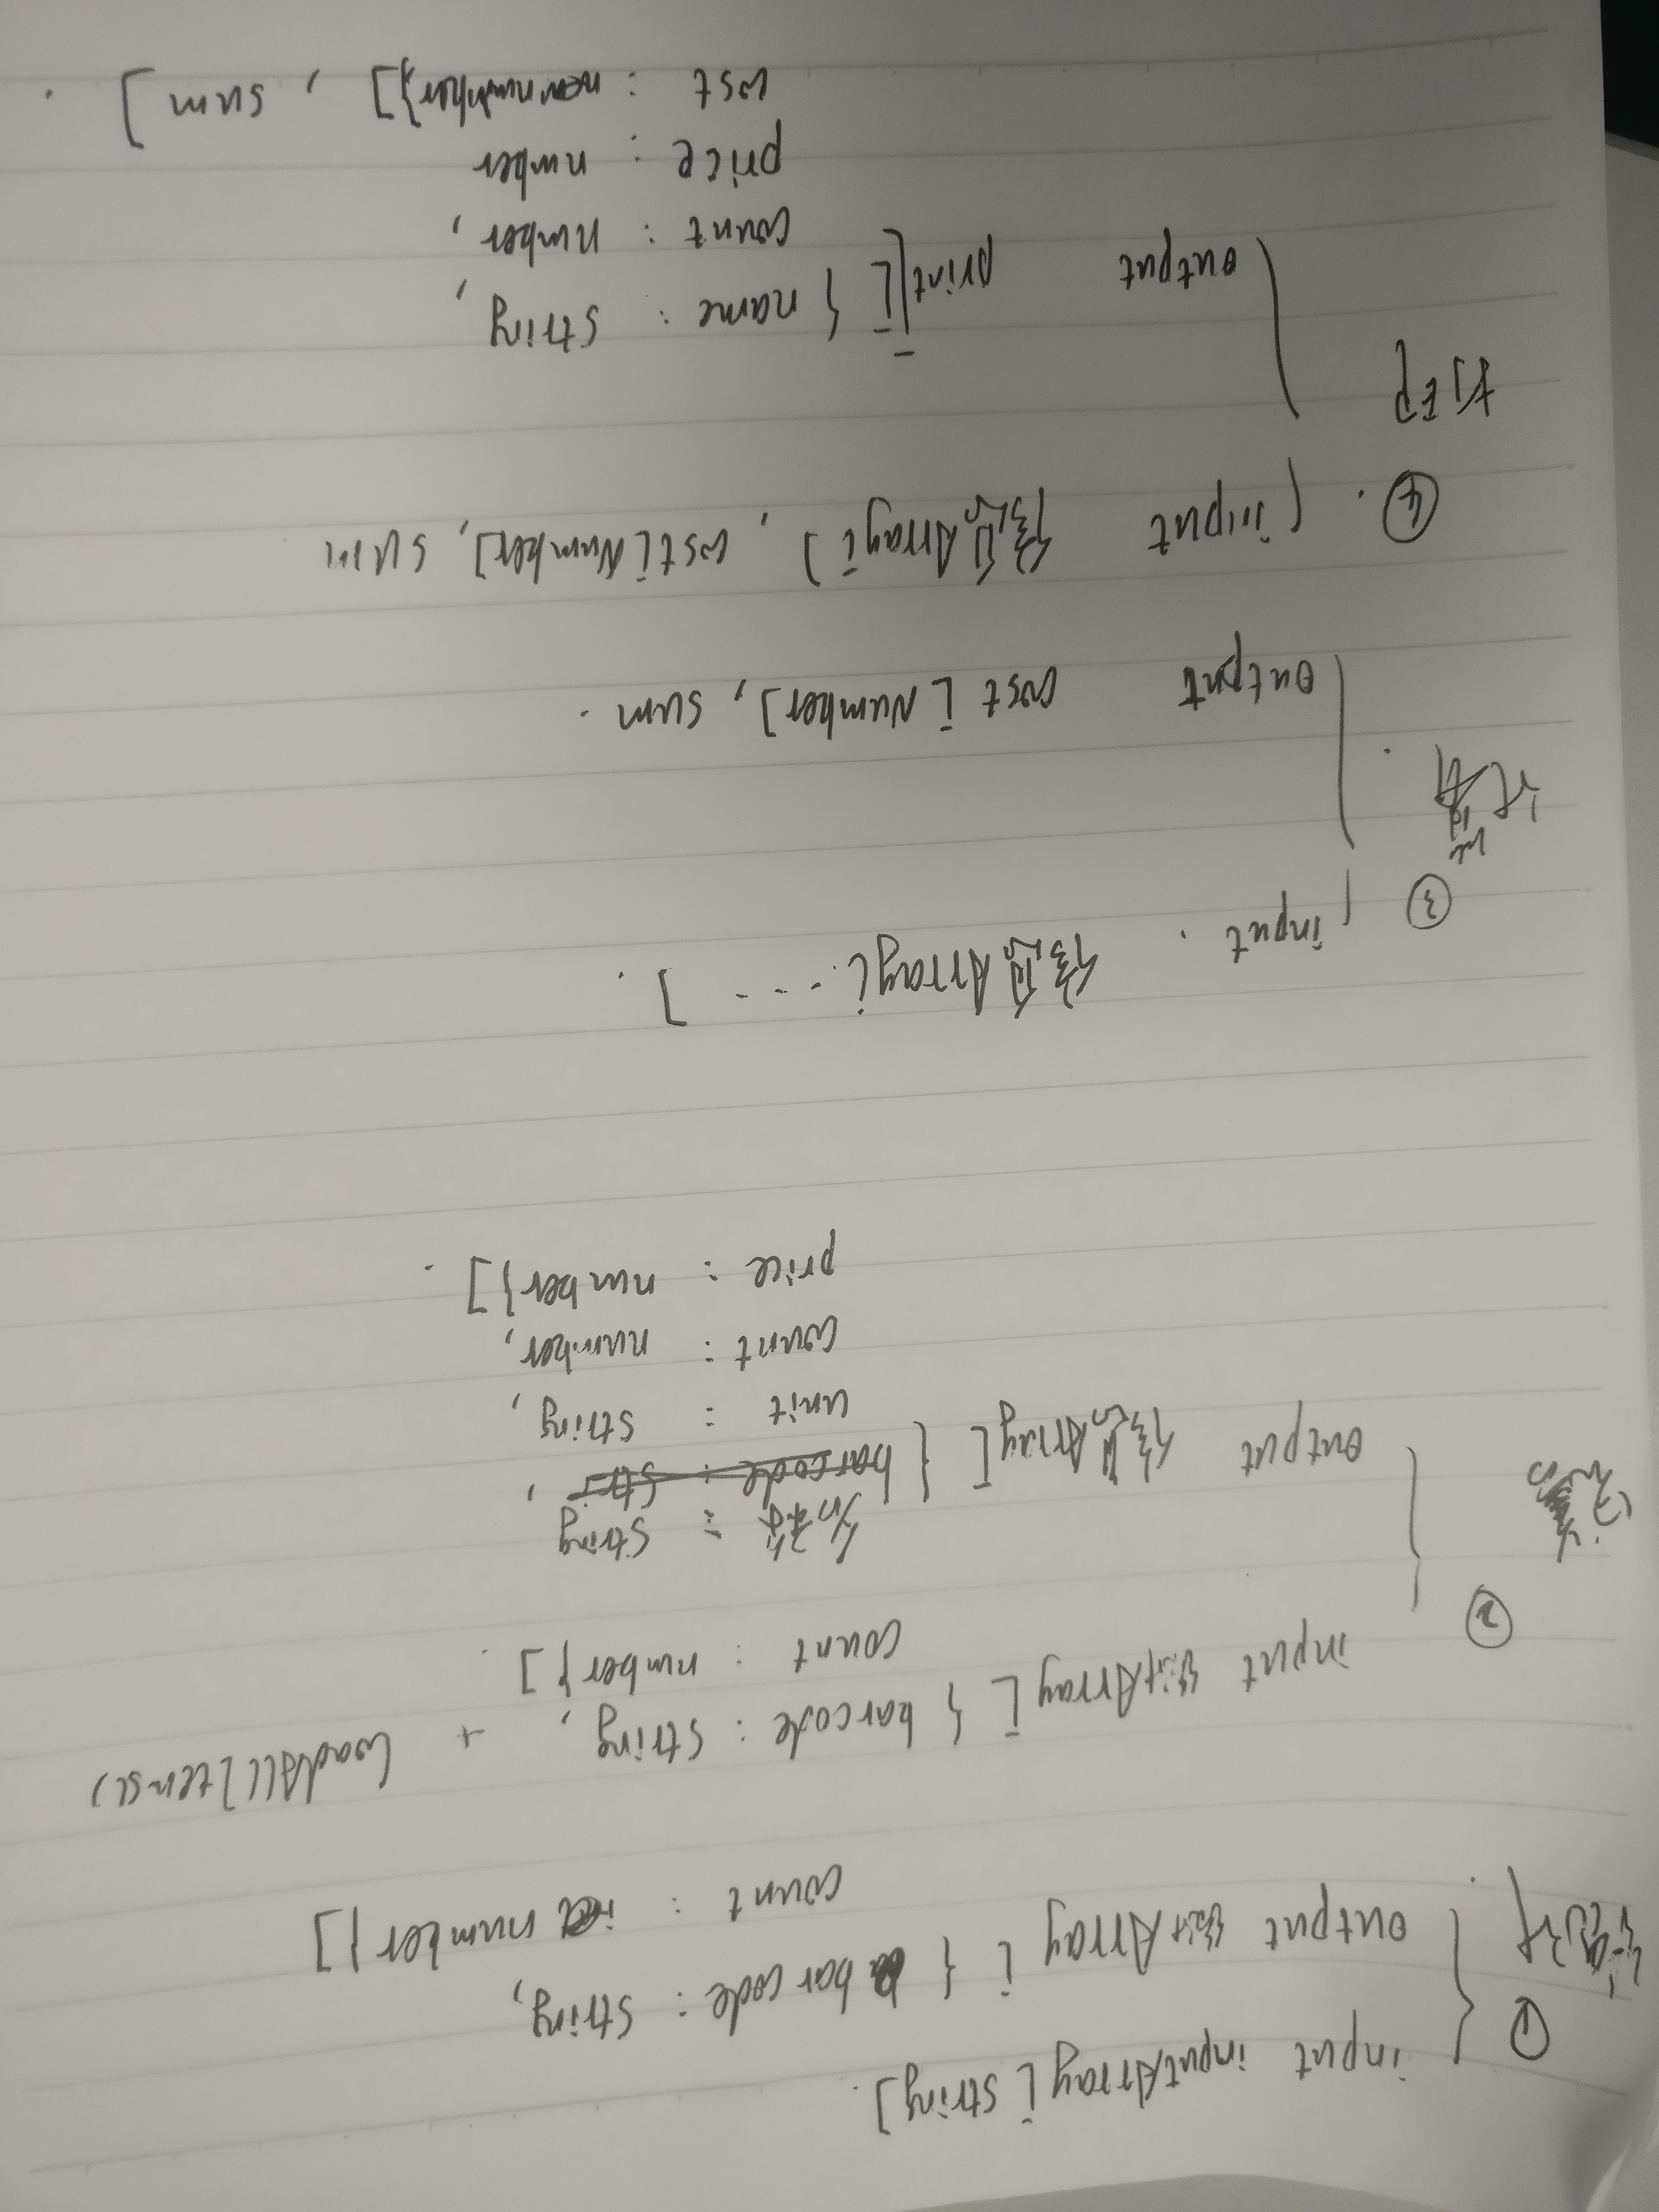 ① input inputArray[string].
output Array [ { barcode : string,
count : number}]
② input Array [ { barcode : string, + loadAllItems()
count : number}].
名称 : string
output 信息Array[ {
unit : string,
count : number,
price : number}].
③ input 信息Array[ --- ].
计算
output cost [Number], sum.
④ input 信息Array[], cost[Number], sum
打印
output print[[ { name : string,
count : number,
price : number
cost : number}], sum].